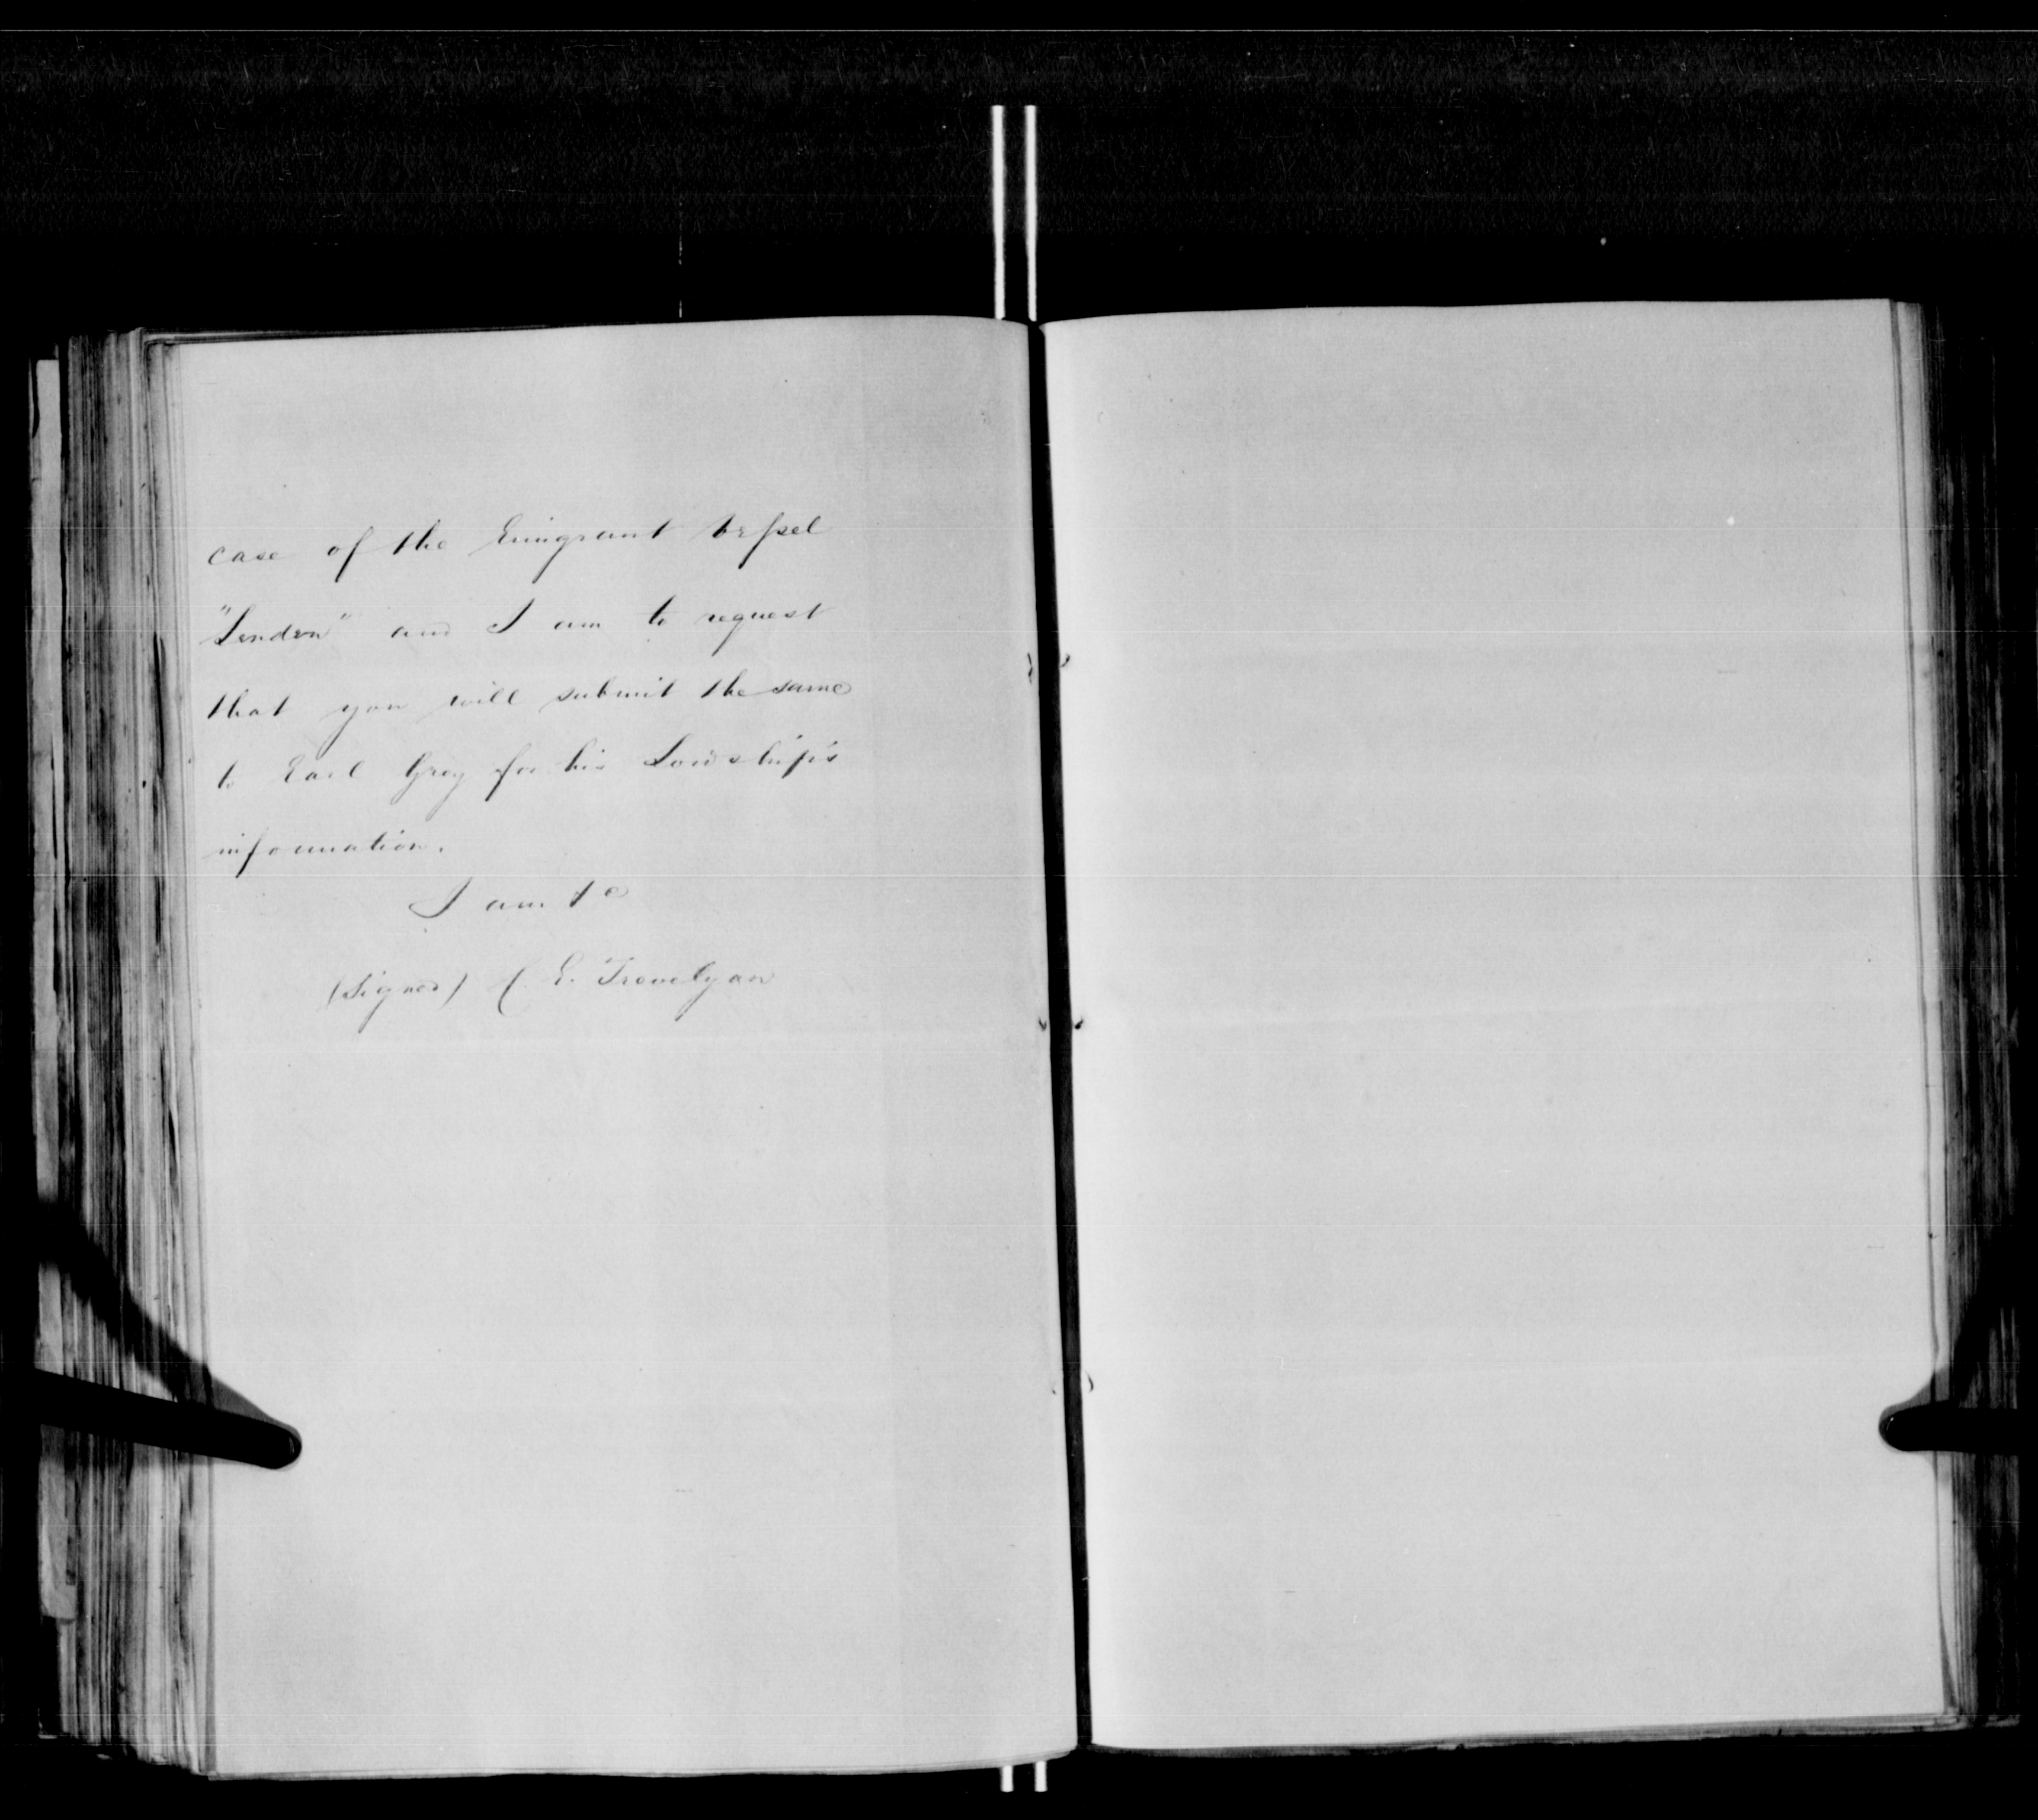 case of the Emigrant Vessel
"Linden" and I am to request
that you will submit the same
to Earl Grey for his Lordship's
information.
I am &c
(Signed) C. E. Trevelyan